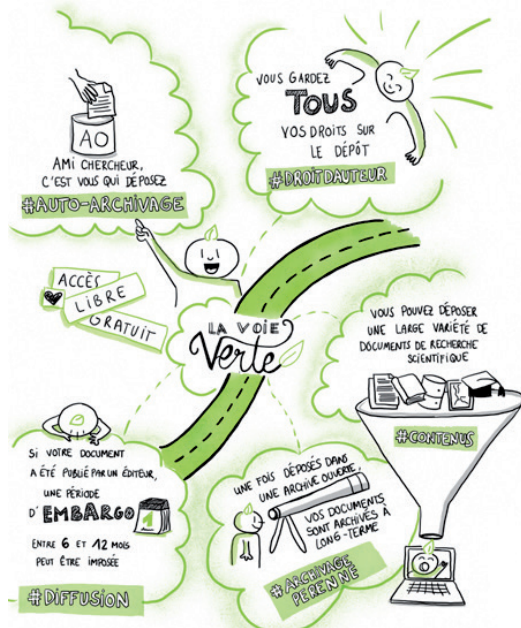 AO
AMI CHERCHEUR,
C'EST VOUS QUI DÉPOSEZ
#AUTO-ARCHIVAGE
VOUS GARDEZ
TOUS
VOS DROITS SUR
LE DÉPÔT
#DROITDAUTEUR
ACCÈS
LIBRE
GRATUIT
LA VOIE
Verte
VOUS POUVEZ DÉPOSER
UNE LARGE VARIÉTÉ DE
DOCUMENTS DE RECHERCHE
SCIENTIFIQUE
#CONTENUS
SI VOTRE DOCUMENT
A ÉTÉ PUBLIÉ PAR UN ÉDITEUR,
UNE PÉRIODE
D'EMBARGO
1
ENTRE 6 ET 12 MOIS
PEUT ÊTRE IMPOSÉE
#DIFFUSION
UNE FOIS DÉPOSÉS DANS
UNE ARCHIVE OUVERTE,
VOS DOCUMENTS
SONT ARCHIVÉS À
LONG-TERME
#ARCHIVAGE
PERENNE